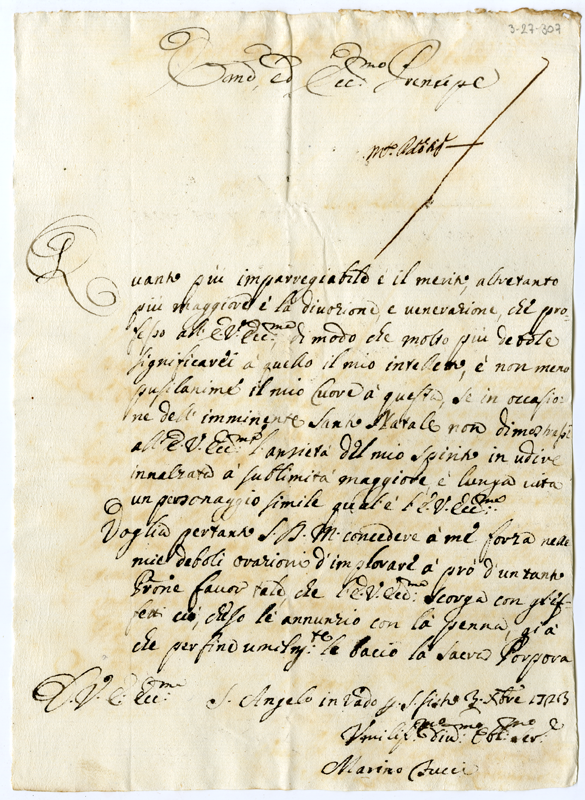 3-27-307
Em.mo ed Ecc.mo Prencipe
Quanto più impareggiabile è il merito, altretanto
più maggiore è la divozione, e venerazione, che pro-
fesso all'E.V. Ecc.ma di modo che molto più debole
significarei à quello il mio intelletto, è non meno
pusilanime il mio Cuore à questa, se in occasio-
ne dell'imminente Santo Natale non dimostrassi
all'E.V. Ecc.ma l'ansietà del mio Spirito in udire
innalzato à sublimità maggiore è lunga vita
un personaggio simile qual'è l'E.V. Ecc.ma
Voglia pertanto S.D.M. concedere à me forza nelle
mie deboli orazioni d'implorare à pro d'un tanto
favor tale che l'E.V. Ecc.ma scorga con gl'ef-
fetti ciò, ch'io le annunzio con la penna, già
che per fine umilm.te le bacio la Sacra Porpora
D.V.E. Ecc.ma S. Angelo in Vado 3 Xbre 1723
Umilis.mo Div.mo Obl.mo ser.e
Marino Bucci